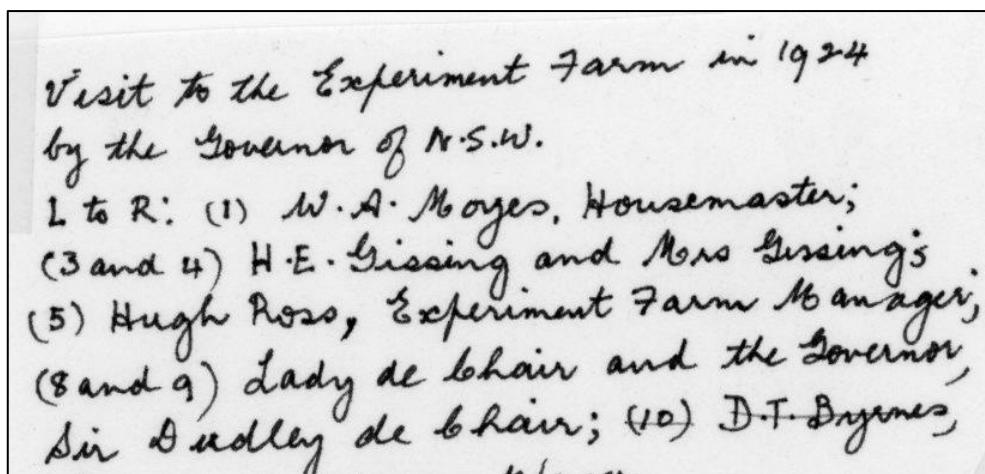 Visit to the Experiment Farm in 1924
by the Governor of N.S.W.
L to R: (1) W.A. Moyes, Housemaster;
(3 and 4) H.E. Gissing and Mrs Gissing;
(5) Hugh Ross, Experiment Farm Manager;
(8 and 9) Lady de Chair and the Governor,
Sir Dudley de Chair; (10) D.T. Byrnes,